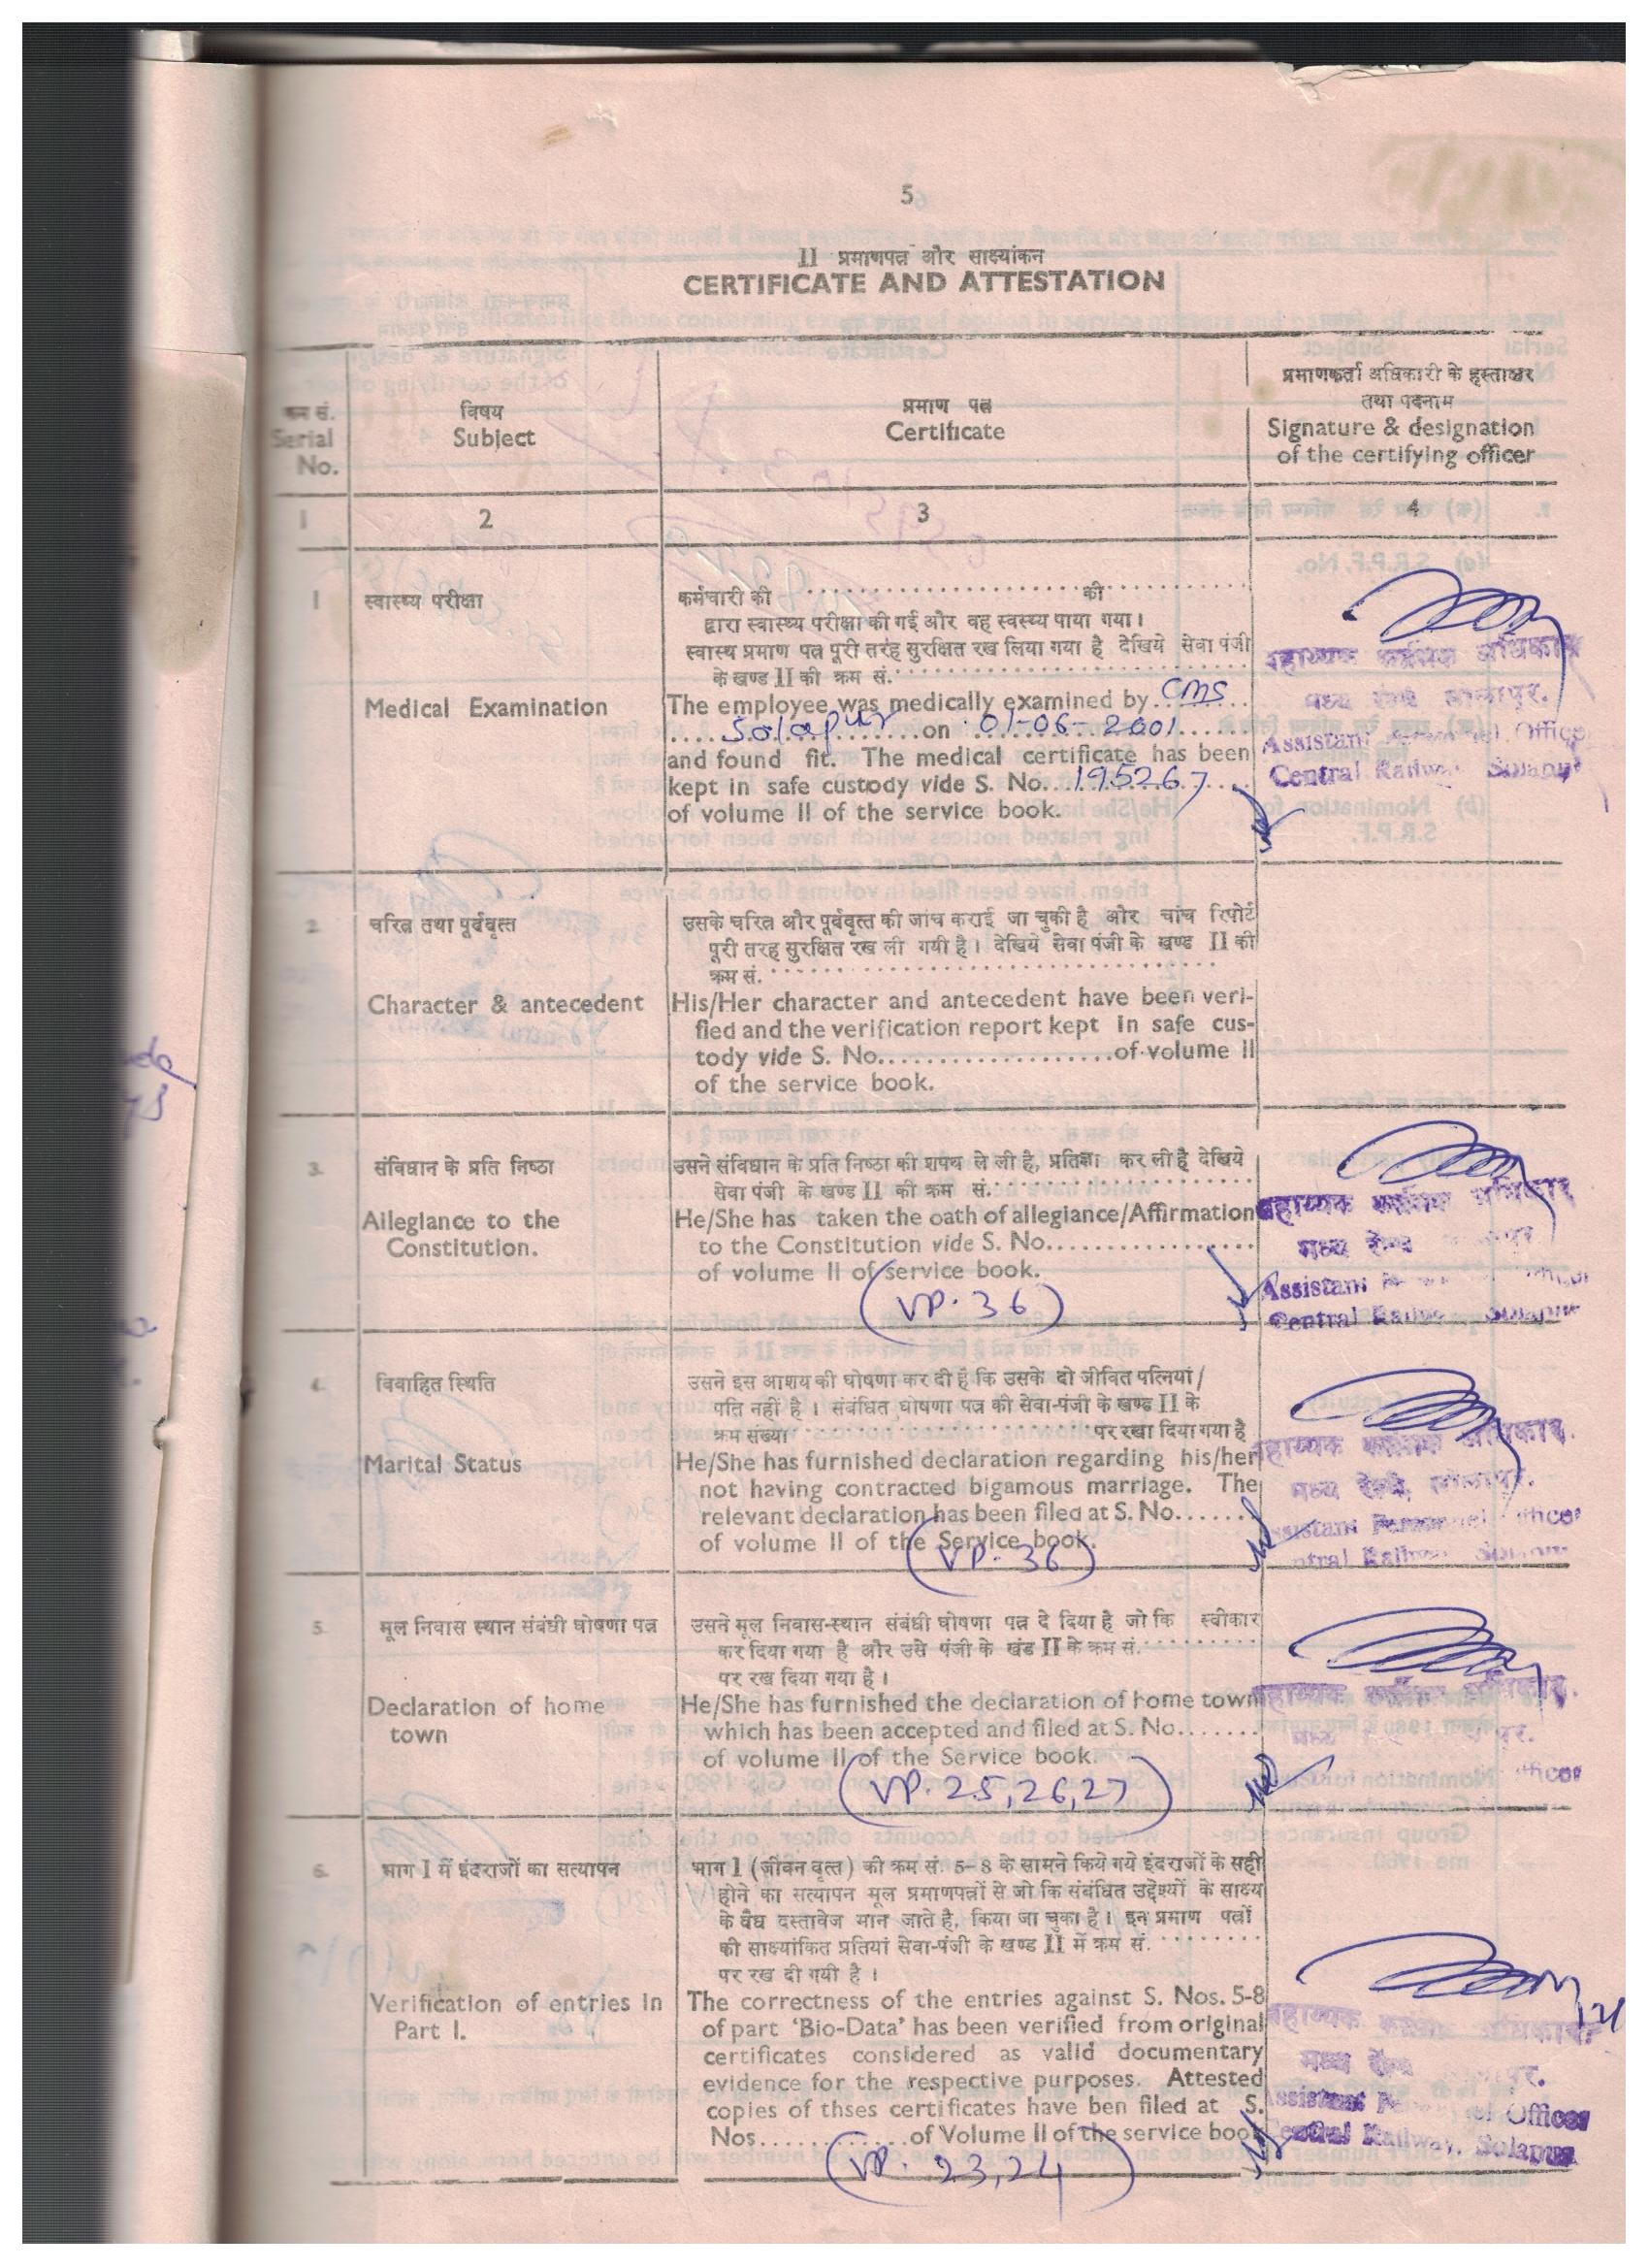 5
II प्रमाणपत्र और साक्ष्यांकन
CERTIFICATE AND ATTESTATION
क्रम सं.
Serial
No.
विषय
Subject
प्रमाण पत्र
Certificate
प्रमाणकर्ता अधिकारी के हस्ताक्षर
तथा पदनाम
Signature & designation
of the certifying officer
1 2 3 4
1 स्वास्थ्य परीक्षा
कर्मचारी की ........................ की ..............
द्वारा स्वास्थ्य परीक्षा की गई और वह स्वस्थ्य पाया गया।
स्वास्थ प्रमाण पत्र पूरी तरह सुरक्षित रख लिया गया है देखिये सेवा पंजी
के खण्ड II की क्रम सं. ..............................
Medical Examination
The employee was medically examined by CMS
Solapur on 01-06-2001
and found fit. The medical certificate has been
kept in safe custody vide S. No. 195267
of volume II of the service book.
सहाय्यक कार्मिक अधिकारी
मध्य रेल्वे सोलापुर.
Assistant Personnel Officer
Central Railway Solapur
2. चरित्र तथा पूर्ववृत्त
उसके चरित्र और पूर्ववृत्त की जांच कराई जा चुकी है और चांच रिपोर्ट
पूरी तरह सुरक्षित रख ली गयी है। देखिये सेवा पंजी के खण्ड II की
क्रम सं. ..............................
Character & antecedent
His/Her character and antecedent have been veri-
fied and the verification report kept in safe cus-
tody vide S. No....................of volume II
of the service book.
3. संविधान के प्रति निष्ठा
उसने संविधान के प्रति निष्ठा की शपथ ले ली है, प्रतिज्ञा कर ली है देखिये
सेवा पंजी के खण्ड II की क्रम सं. ..............................
Allegiance to the
Constitution.
He/She has taken the oath of allegiance/Affirmation
to the Constitution vide S. No..................
of volume II of service book.
VP. 36
सहाय्यक कार्मिक अधिकारी
मध्य रेल्वे
Assistant
Central Railway Solapur
4. विवाहित स्थिति
उसने इस आशय की घोषणा कर दी है कि उसके दो जीवित पत्नियां/
पति नहीं है। संबंधित घोषणा पत्र की सेवा-पंजी के खण्ड II के
क्रम संख्या .............................. पर रखा दिया गया है
Marital Status
He/She has furnished declaration regarding his/her
not having contracted bigamous marriage. The
relevant declaration has been filed at S. No.......
of volume II of the Service book.
VP. 36
सहाय्यक कार्मिक अधिकारी.
मध्य रेल्वे, सोलापुर.
Assistant Personnel Officer
Central Railway Solapur
5. मूल निवास स्थान संबंधी घोषणा पत्र
उसने मूल निवास-स्थान संबंधी घोषणा पत्र दे दिया है जो कि स्वीकार
कर दिया गया है और उसे पंजी के खंड II के क्रम सं. ............
पर रख दिया गया है।
Declaration of home
town
He/She has furnished the declaration of home town
which has been accepted and filed at S. No.......
of volume II of the Service book.
VP. 25,26,27
सहाय्यक कार्मिक अधिकारी.
6. भाग I में इंदराजों का सत्यापन
भाग I (जीवन वृत्त) की क्रम सं. 5-8 के सामने किये गये इंदराजों के सही
होने का सत्यापन मूल प्रमाणपत्रों से जो कि संबंधित उद्देश्यों के साक्ष्य
के वैध दस्तावेज मान जाते है, किया जा चुका है। इन प्रमाण पत्रों
की साक्ष्यांकित प्रतियां सेवा-पंजी के खण्ड II में क्रम सं. ............
पर रख दी गयी है।
Verification of entries in
Part I.
The correctness of the entries against S. Nos. 5-8
of part ‘Bio-Data’ has been verified from original
certificates considered as valid documentary
evidence for the respective purposes. Attested
copies of thses certificates have ben filed at S.
Nos..............of Volume II of the service book
VP. 23,24
सहाय्यक कार्मिक अधिकारी
मध्य रेल्वे
Assistant Personnel Officer
Central Railway, Solapur